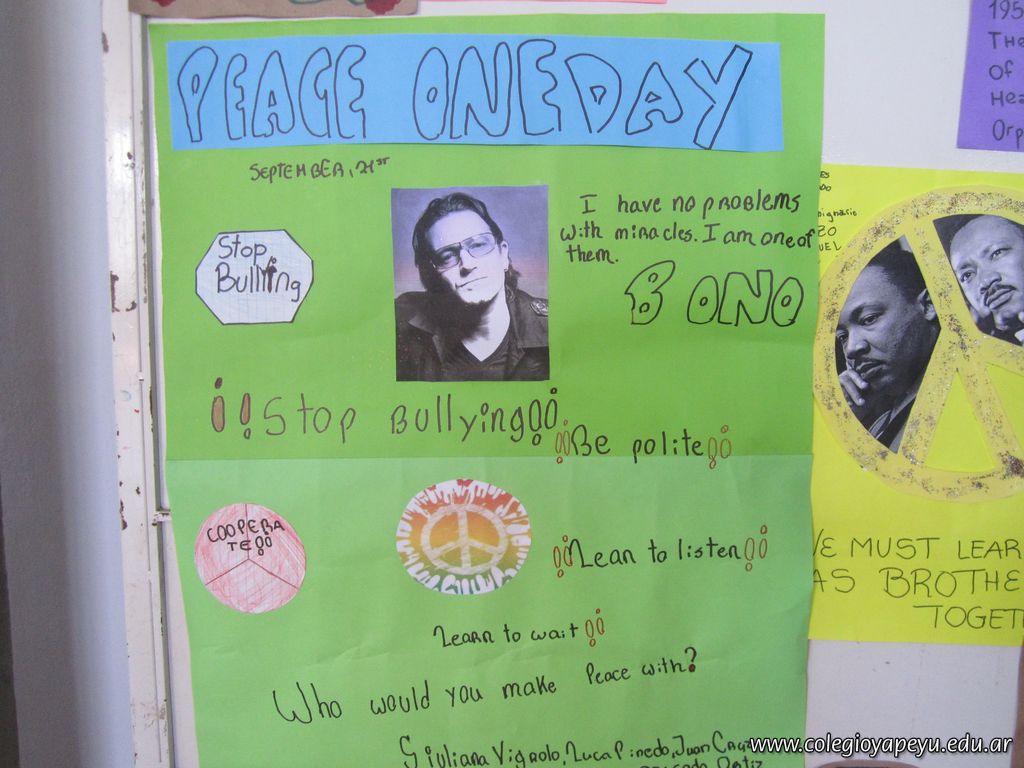 PEACE ONE DAY
SEPTEMBER, 21ST
Stop
Bulling
I have no problems
with miracles. I am one of
them.
BONO
¡¡Stop Bullying!!
¡¡Be polite!!
COOPERA
TE!!
¡¡Lean to listen!!
Learn to wait!!
Who would you make Peace with?
Giuliana Vignolo, Luca Pinedo, Juan
Ortiz
195
The
Of
Hea
Orp
VE MUST LEAR
AS BROTHE
TOGET
www.colegioyapeyu.edu.ar